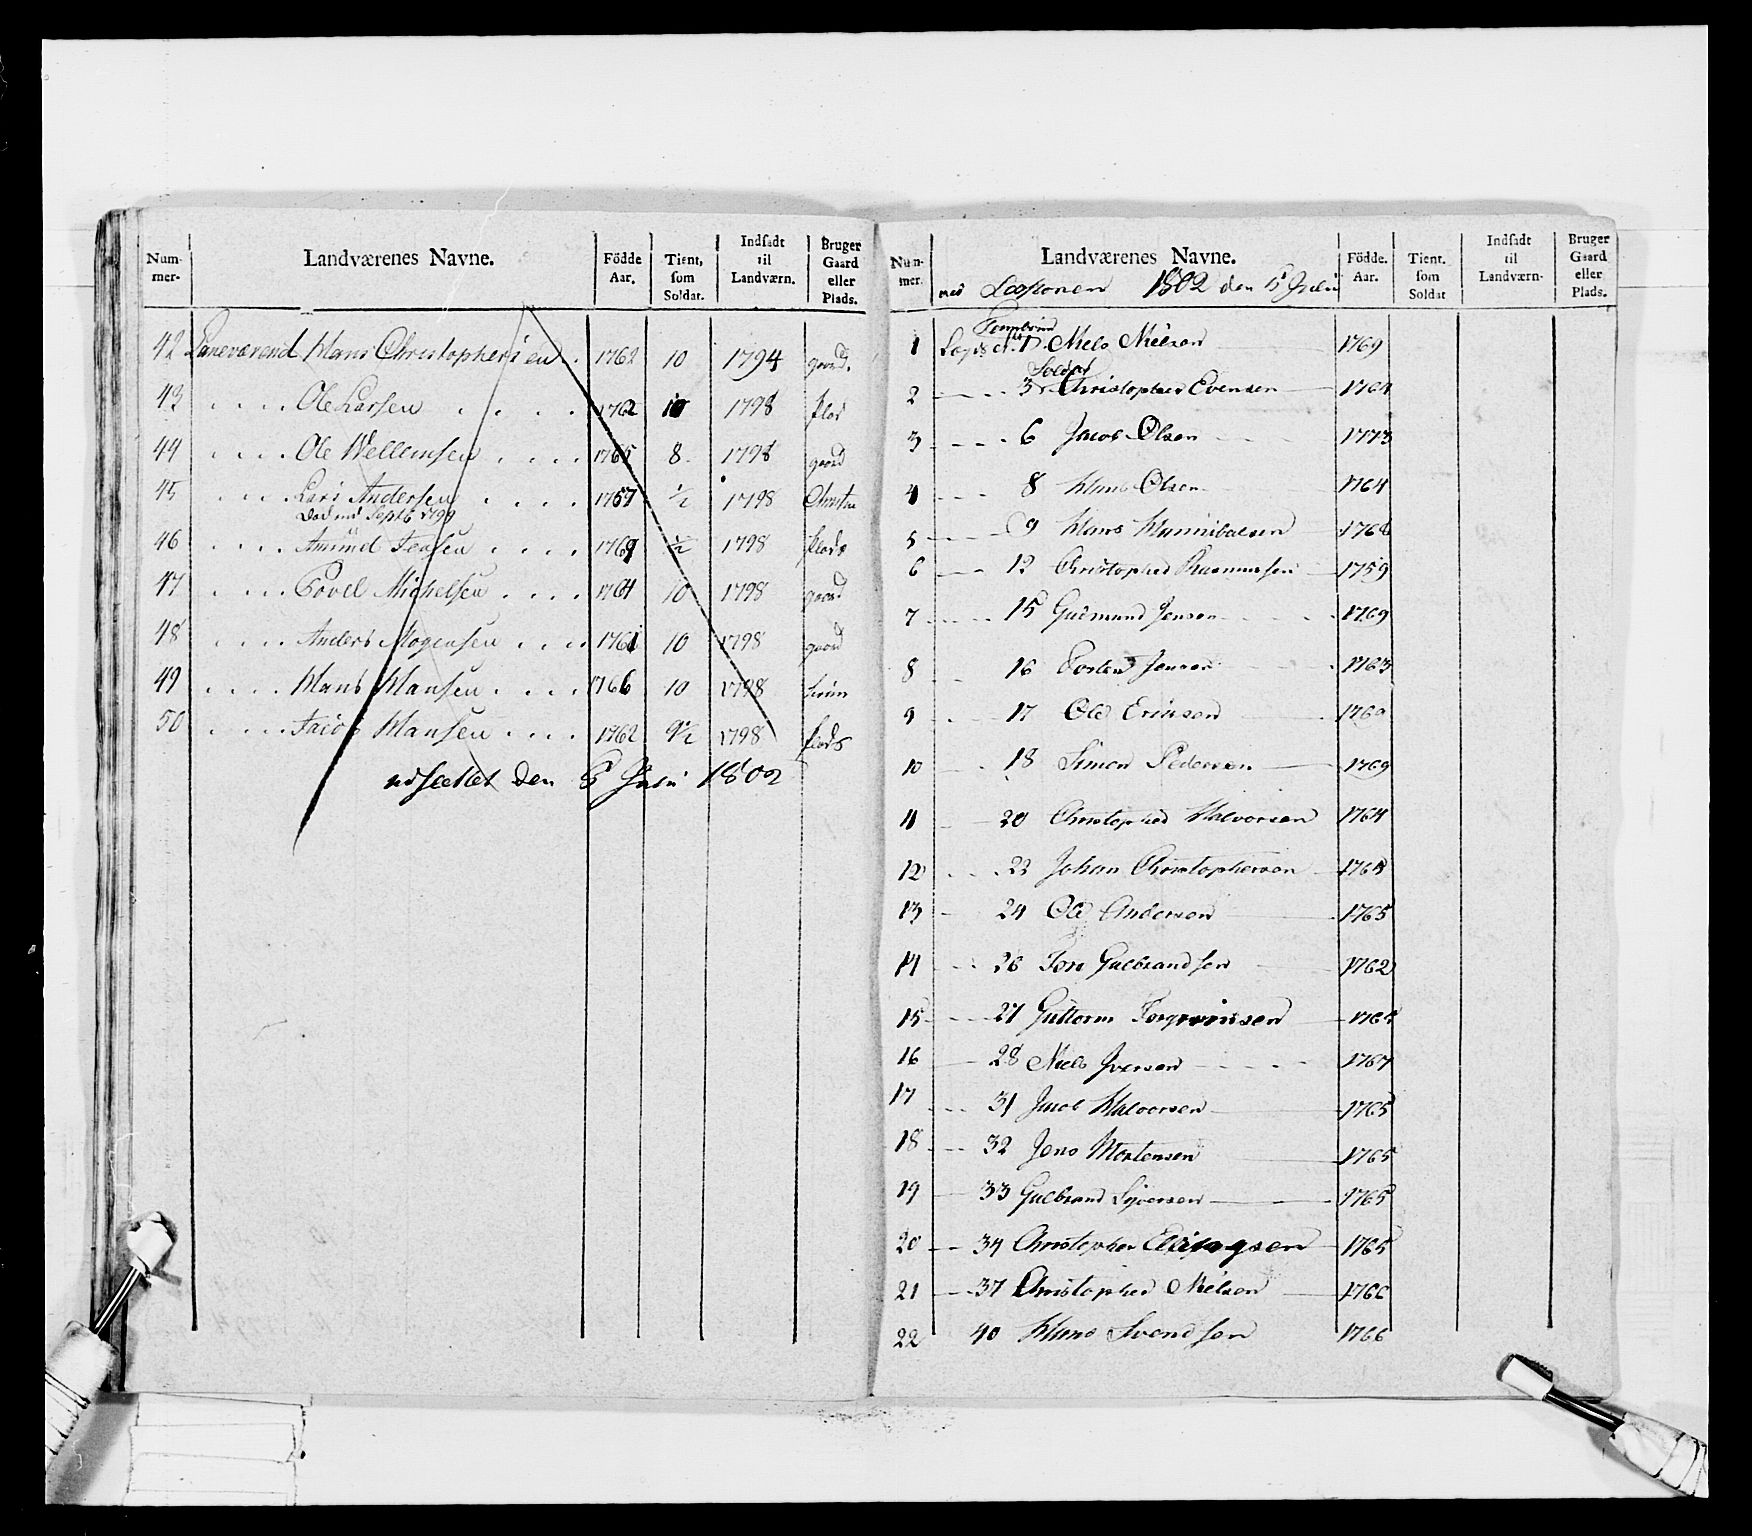 Num-
mer-
Landværenes Navne.
Födde
Aar.
Tient,
som
Soldat.
Indsadt
til
Landværn.
Bruger
Gaard
eller
Plads.
42 Hans Christophersen 1762 10 1794 gaard.
43 Ole Larsen 1762 10 1798 Plad
44 Ole Wellemsen 1765 8 1798 gaard
45 Lars Andersen 1757 ½ 1798
46 Amund 1769 ½ 1798 Plads
47 Povel Michelsen 1764 10 1798 gaard
48 Anders Mogensen 1761 10 1798 gaard
49 Hans Hansen 1766 10 1798
50 Jacob Hansen 1762 9½ 1798 Plads
udsættet den 5 Juli 1802
Num-
mer.
Landværenes Navne.
Födde.
Aar.
Tient.
som
Soldat
Indsadt
til
Landværn-
Bruger
Gaard
eller
Plads.
ved 1802 den 5 Juli
1 Niels Nielsen 1769
Soldat
2 3 Christopher Evensen 1764
3 6 Jacob Olsen 1773
4 8 Hans Olsen 1764
5 9 Hans Hannibalsen 1768
6 12 Christopher Rasmussen 1759
7 15 Gudmund Jensen 1769
8 16 Jensen 1763
9 17 Ole Ericsen 1769
10 18 Simen Pedersen 1769
11 20 Christopher Halvorsen 1764
12 23 Johan Christophersen 1764
13 24 Ole Andersen 1765
14 26 Gulbrandsen 1762
15 27 Guttorm 1765
16 28 Niels Iversen 1767
17 31 Jacob Halvorsen 1765
18 32 Jens Mortensen 1765
19 33 Gulbrand Syversen 1765
20 34 Christopher 1765
21 37 Christopher Nielsen 1766
22 40 Hans Svendsen 1766